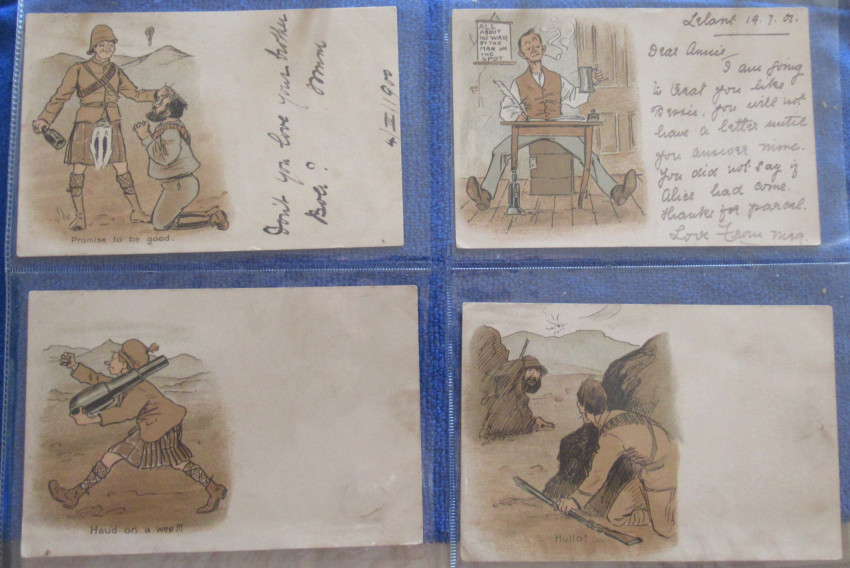 Don't you love your brother
Bob?
4/II/1900
Promise to be good.
ALL
ABOUT
THE WAR
BY THE
MAN ON
THE
SPOT
Lelant 19.7.01.
Dear Annie,
I am going
to treat you like
Bessie, you will not
have a letter until
you answer mine.
You did not say if
Alice had come.
Thanks for parcel.
Love from Meg.
Haud on a wee!!!
Hullo!